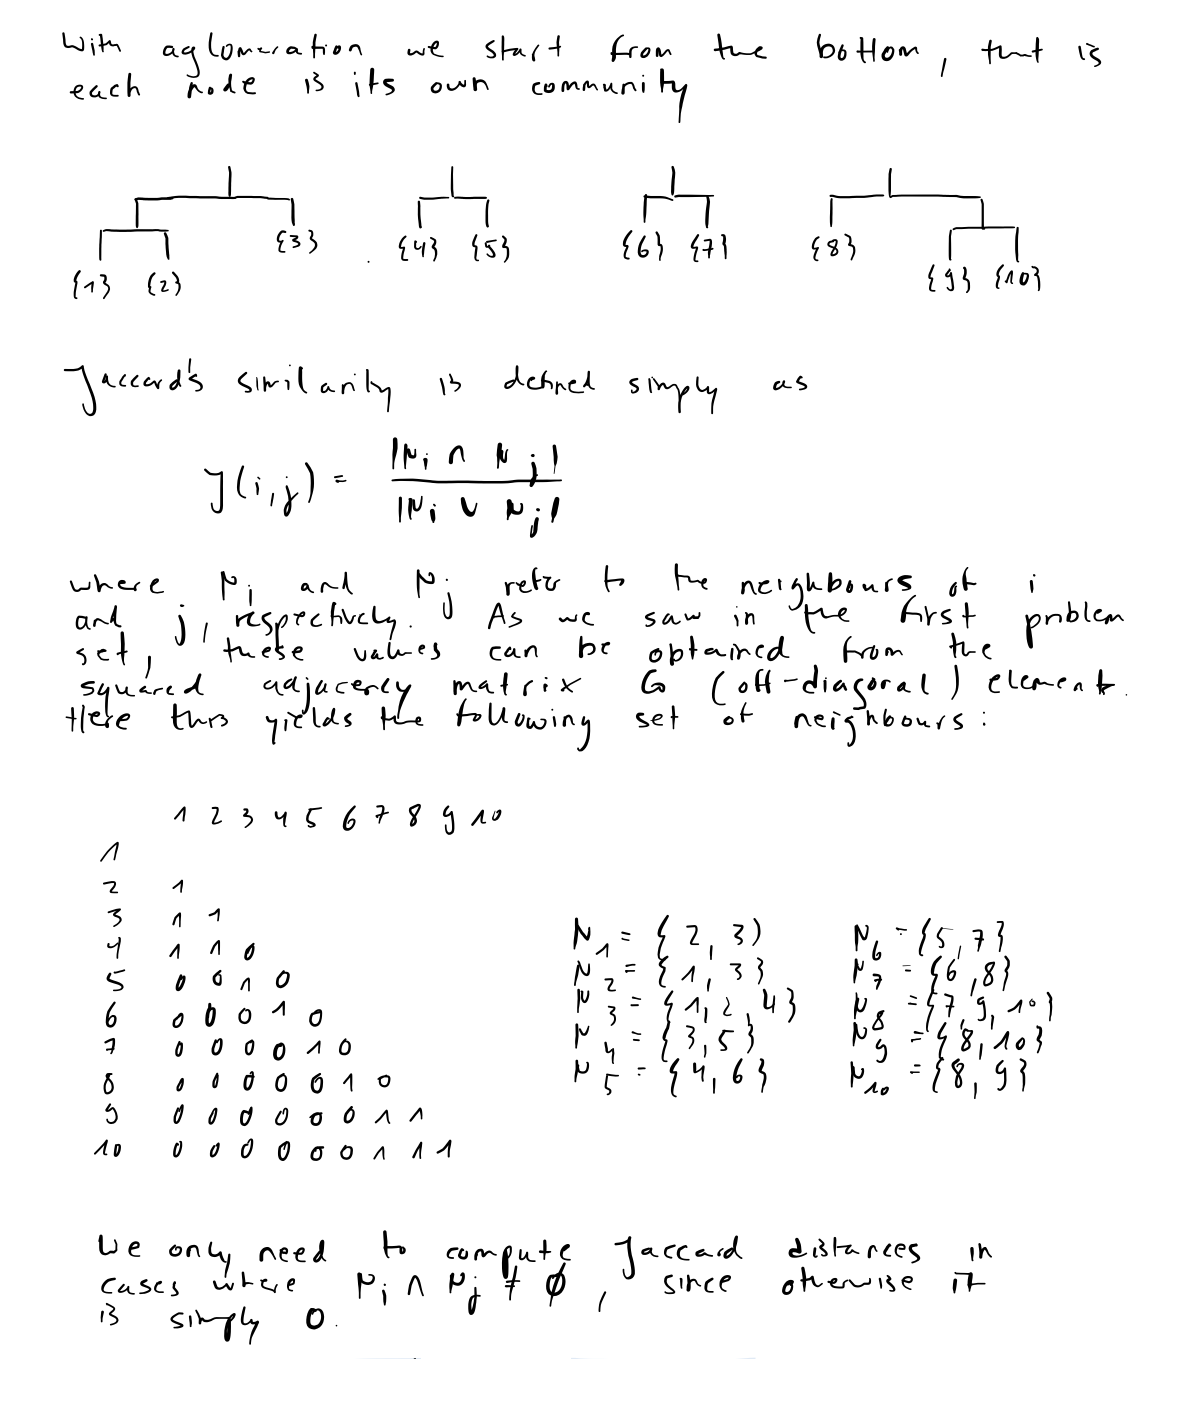 With aglomeration we start from the bottom, that is
each node is its own community
{3} {4} {5} {6} {7} {8}
{1} {2} {9} {10}
Jaccard's similarity is defined simply as
J(i,j) = |Ni ∩ Nj|
|Ni ∪ Nj|
where Ni and Nj refer to the neighbours of i
and j, respectively. As we saw in the first problem
set, these values can be obtained from the
squared adjacency matrix G (off-diagonal) element.
Here this yields the following set of neighbours:
1 2 3 4 5 6 7 8 9 10
1
2 1
3 1 1
4 1 1 0
5 0 0 1 0
6 0 0 0 1 0
7 0 0 0 0 1 0
8 0 0 0 0 0 1 0
9 0 0 0 0 0 0 1 1
10 0 0 0 0 0 0 1 1 1
N1 = {2, 3) N6 = {5, 7}
N2 = {1, 3} N7 = {6, 8}
N3 = {1, 2, 4} N8 = {7, 9, 10}
N4 = {3, 5} N9 = {8, 10}
N5 = {4, 6} N10 = {8, 9}
We only need to compute Jaccard distances in
cases where Ni ∩ Nj ≠ ∅, since otherwise it
is simply 0.